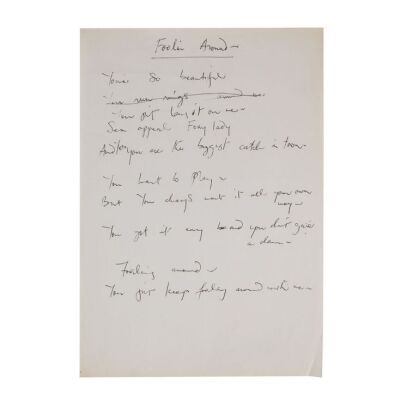 Foolin Around
Youre so beautiful
You run rings around me
You put bang it on me
Sex appeal Foxy lady
And you are the biggest catch in town
You want to play
But You always want it all your own
way
You got it easy and you don't give
a damn
Fooling around
You just keep fooling around with me